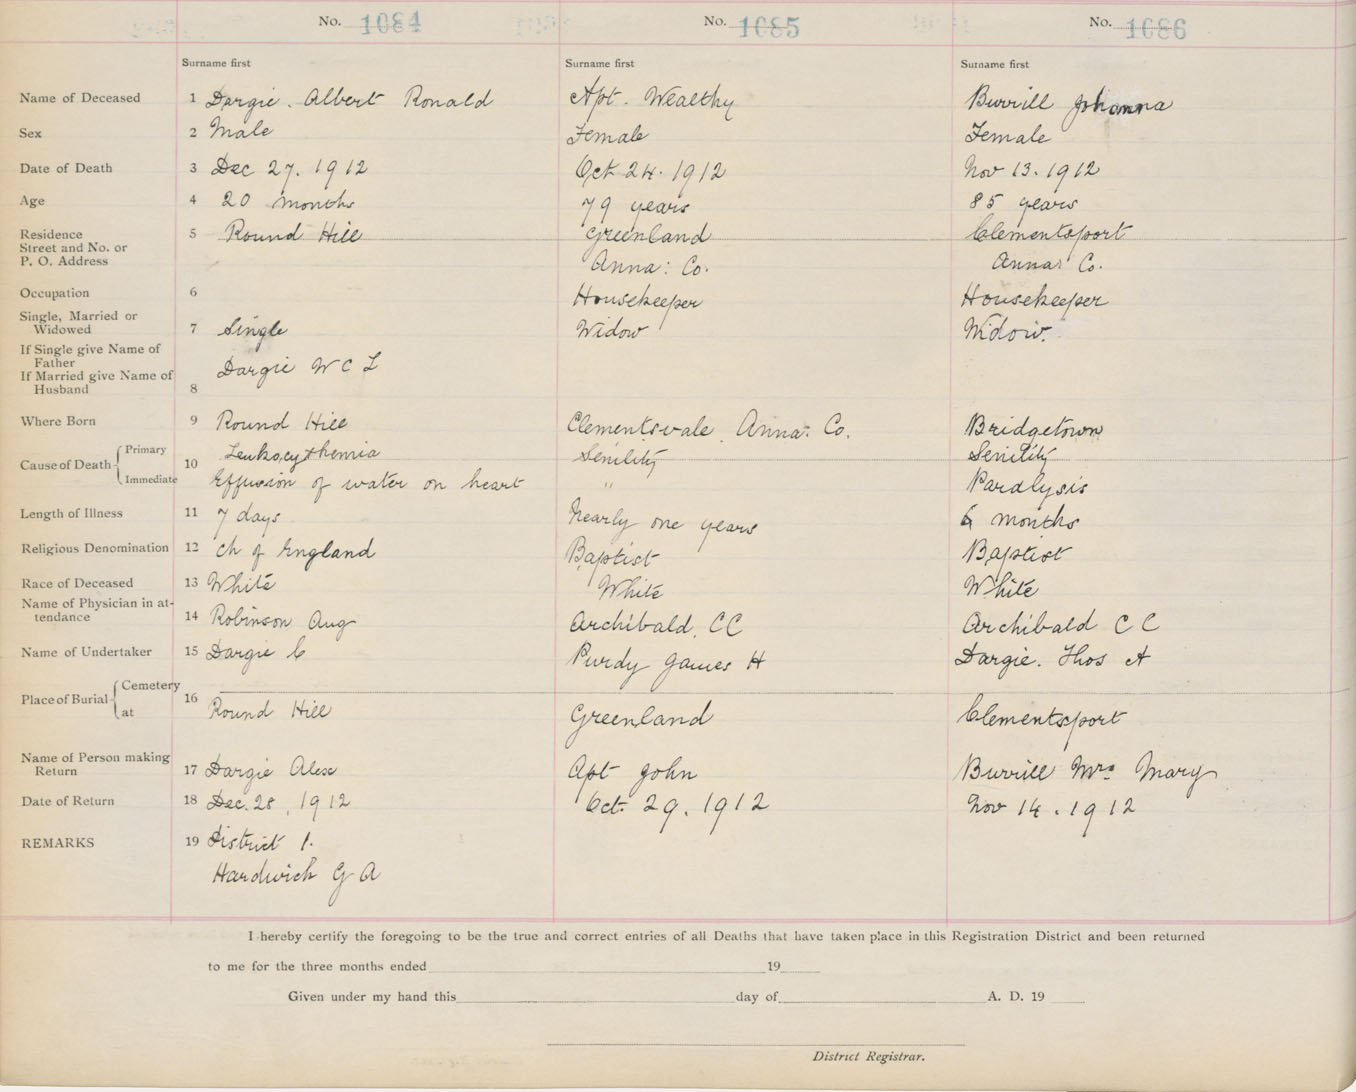 No. 1084 No. 1085 No. 1086
Surname first Surname first Surname first
Name of Deceased 1 Dargie. Albert Ronald Apt. Wealthy Burrill Johanna
Sex 2 Male Female Female
Date of Death 3 Dec 27. 1912 Oct 24. 1912 Nov 13. 1912
Age 4 20 months 79 years 85 years
Residence 5 Round Hill Greenland Clementsport
Street and No. or
P. O. Address Anna: Co. Anna: Co.
Occupation 6 Housekeeper Housekeeper
Single, Married or
Widowed 7 Single Widow Widow.
If Single give Name of
Father Dargie W C L
If Married give Name of
Husband 8
Where Born 9 Round Hill Clementsvale Anna: Co. Bridgetown
Primary Leukocythemia Senility Senility
Cause of Death 10
Immediate Effusion of water on heart " Paralysis
Length of Illness 11 7 days Nearly one years 6 months
Religious Denomination 12 Ch of England Baptist Baptist
Race of Deceased 13 White White White
Name of Physician in at-
tendance 14 Robinson Aug Archibald, CC Archibald C C
Name of Undertaker 15 Dargie C Purdy James H Dargie. Thos A
Cemetery
Place of Burial 16
at Round Hill Greenland Clementsport
Name of Person making
Return 17 Dargie Alex Apt John Burrill Mrs Mary
Date of Return 18 Dec. 28, 1912 Oct. 29. 1912 Nov 14. 1912
REMARKS 19 District 1.
Hardwick G A
I hereby certify the foregoing to be the true and correct entries of all Deaths that have taken place in this Registration District and been returned
to me for the three months ended 19
Given under my hand this day of A. D. 19
District Registrar.